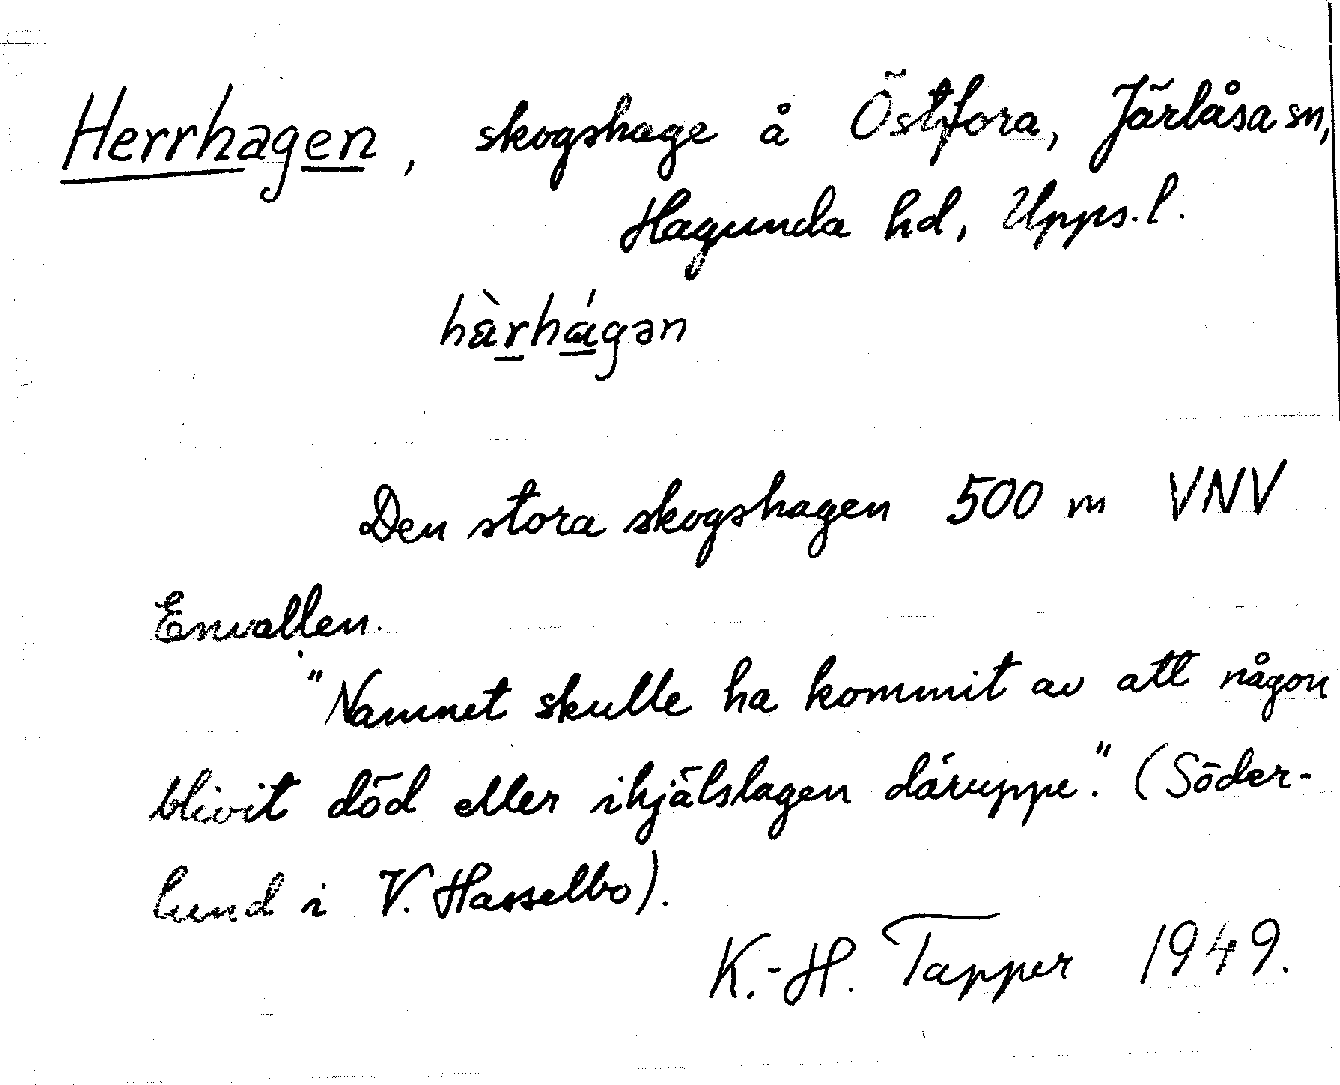 Herrhagen, skogshage å Östfora, Järlåsa sn,
Hagunda hd, Upps.l.
hàrhágən
Den stora skogshagen 500 m VNV
Envallen.
"Namnet skulle ha kommit av att någon
blivit död eller ihjälslagen däruppe." (Söder-
lund i V. Hasselbo).
K.-H. Tapper 1949.